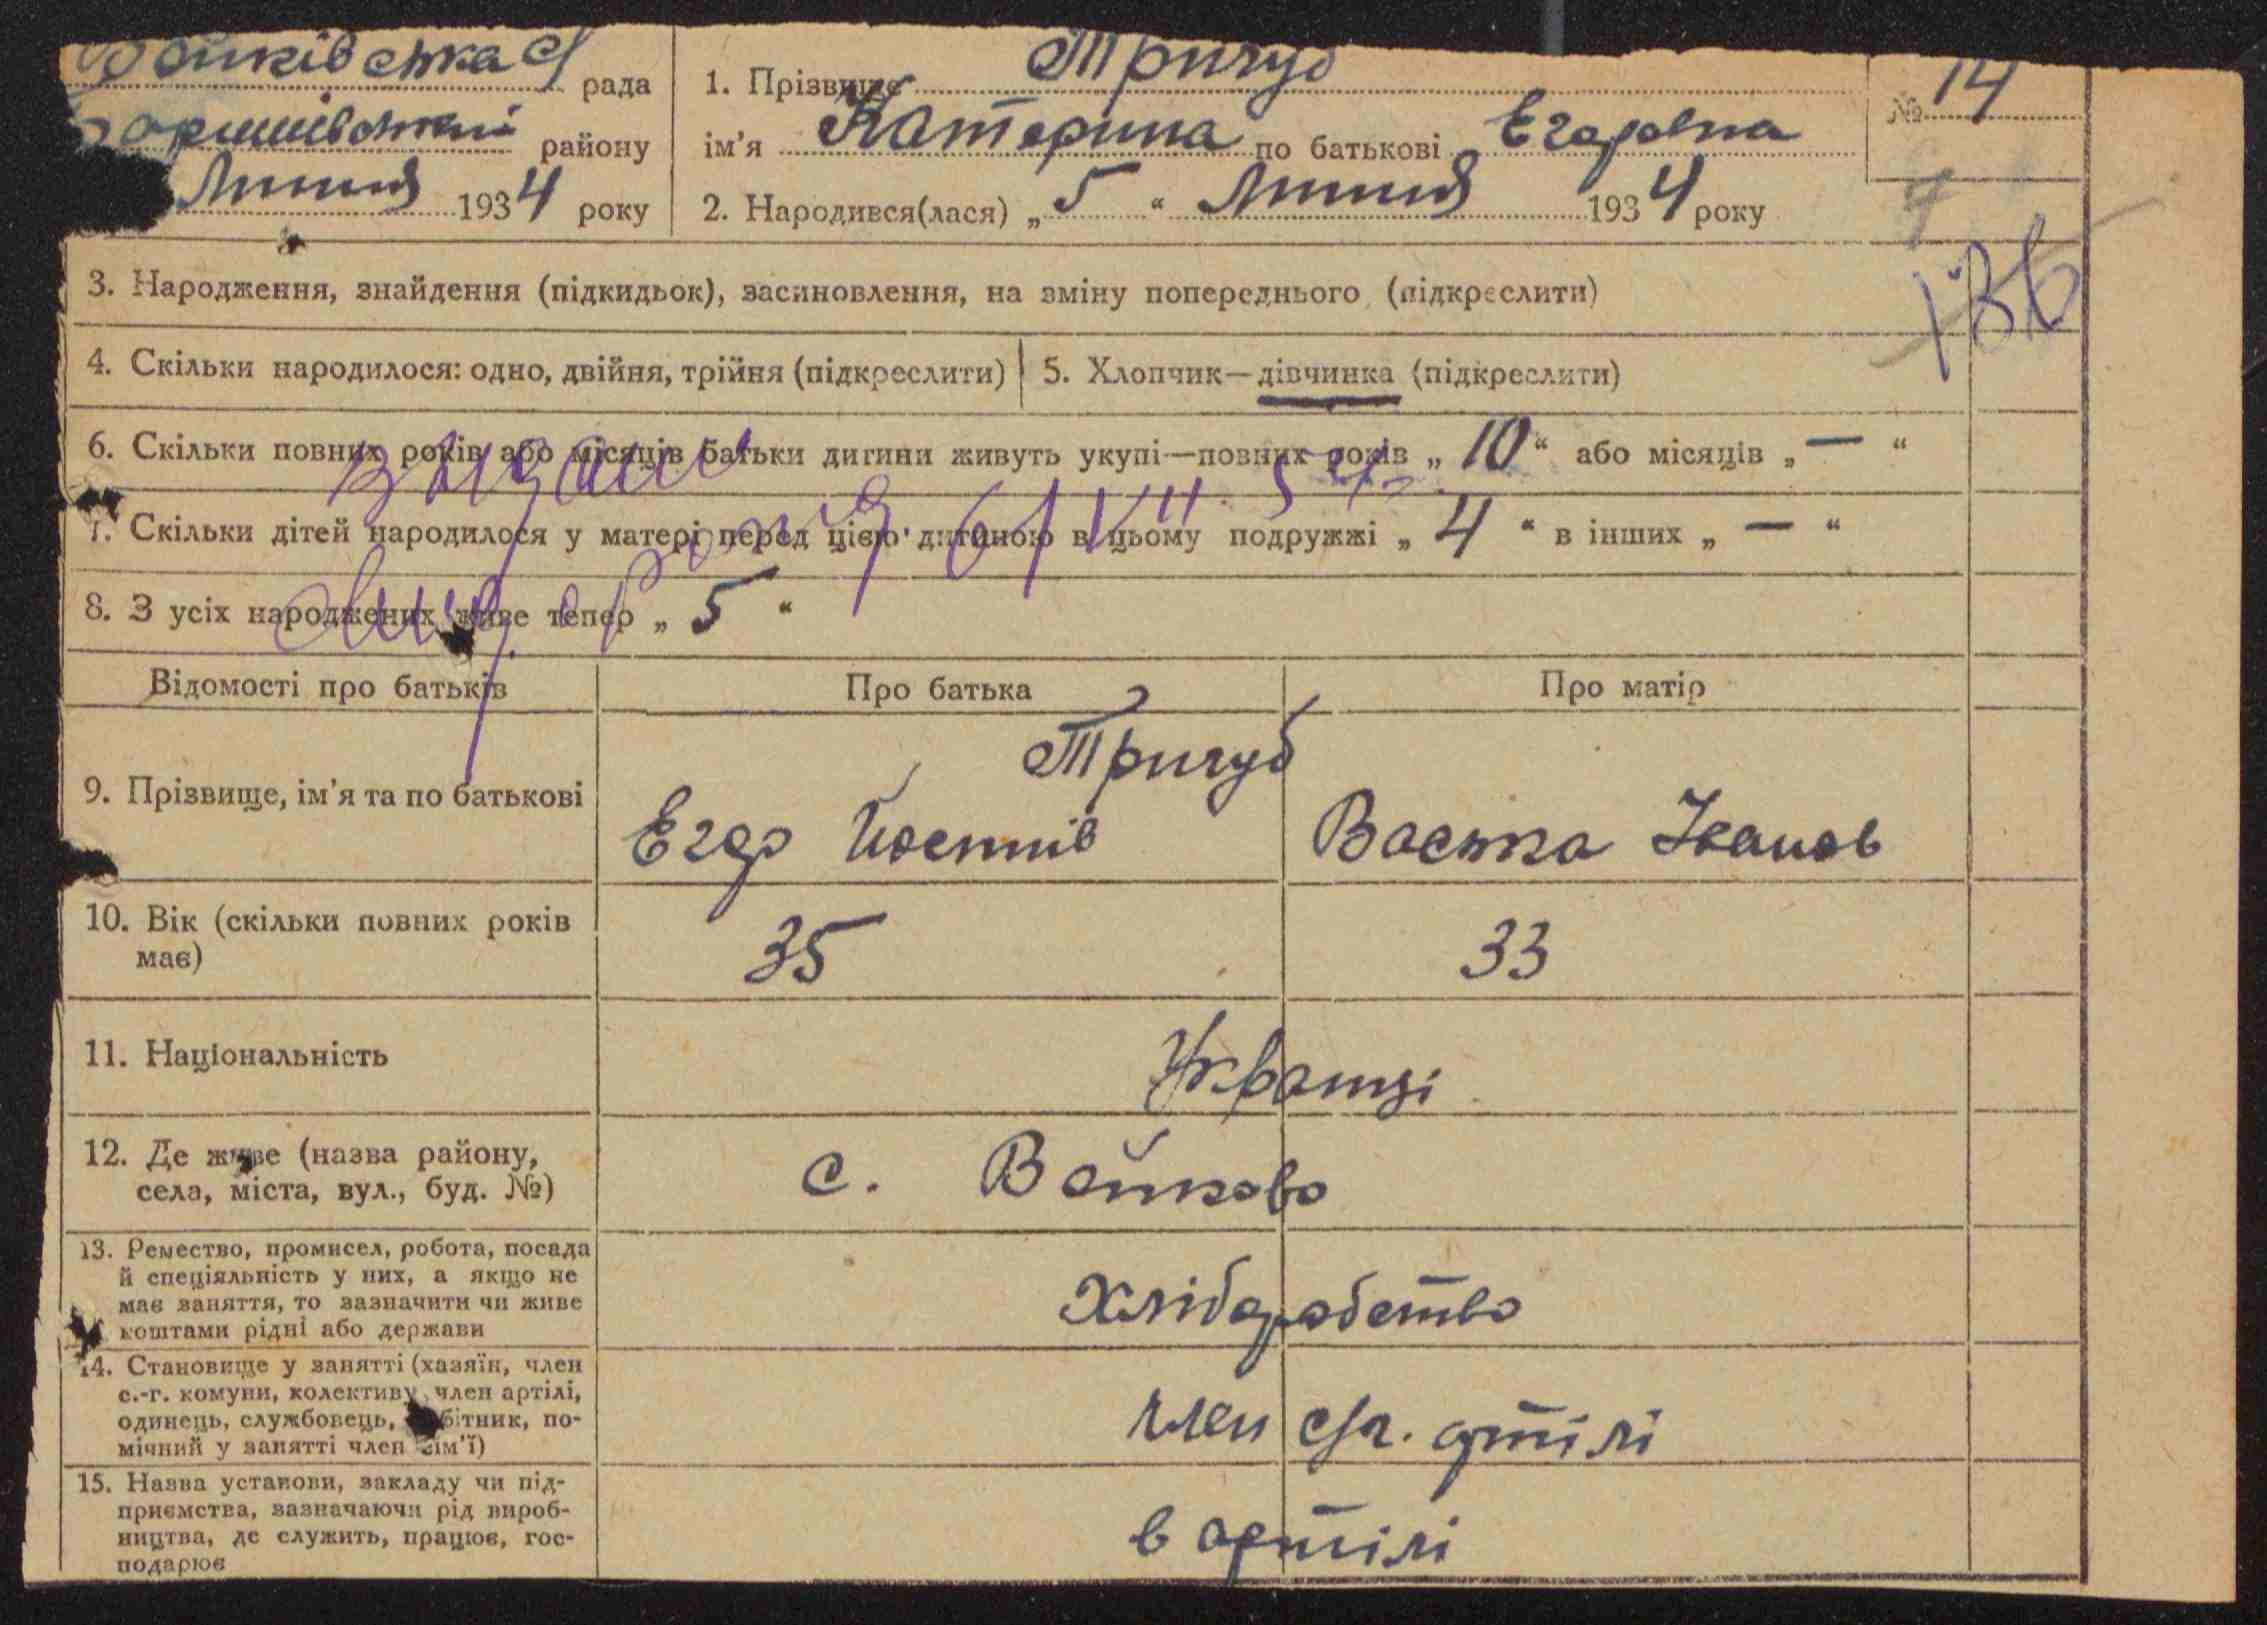 Войківська с/ рада
Баришівський району
Липня 1934 року
1. Прізвище Тригуб
№ 14
ім'я Катерина по батькові Егоровна
2. Народився(лася) „5“ Липня 1934 року
7
136
3. Народження, знайдення (підкидьок), засиновлення, на зміну попереднього (підкреслити)
4. Скільки народилося: одно, двійня, трійня (підкреслити)
5. Хлопчик—дівчинка (підкреслити)
6. Скільки повних років або місяців батьки дитини живуть укупі—повних років „10“ або місяців „—“
7. Скільки дітей народилося у матері перед цією дитиною в цьому подружжі „4“ в інших „—“
8. З усіх народжених живе тепер „5“
Відомості про батьків
Про батька
Про матір
9. Прізвище, ім'я та по батькові
Тригуб
Егор Йосипів
Васька Іванов
10. Вік (скільки повних років
має)
35
33
11. Національність
Українці
12. Де живе (назва району,
села, міста, вул., буд. №)
с. Войково
13. Ремество, промисел, робота, посада
й спеціяльність у них, а якщо не
має заняття, то зазначити чи живе
коштами рідні або держави
Хліборобство
14. Становище у занятті (хазяїн, член
с.-г. комуни, колективу, член артілі,
одинець, службовець, робітник, по-
мічний у занятті член сім'ї)
член с/г. артілі
15. Назва установи, закладу чи під-
приємства, зазначаючи рід вироб-
ництва, де служить, працює, гос-
подарює
в артілі